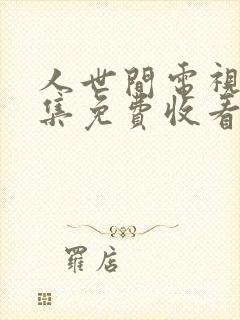 人世間電視
集免費收看
羅店